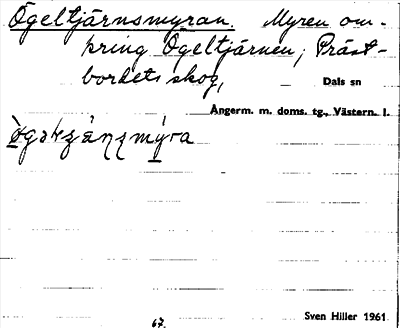 Ögeltjärnsmyran. Myren om-
kring Ögeltjärnen, Präst-
bordets skog,
Dals sn
Ångerm. m. doms. tg., Västern. l.
Sven Hiller 1961
67.